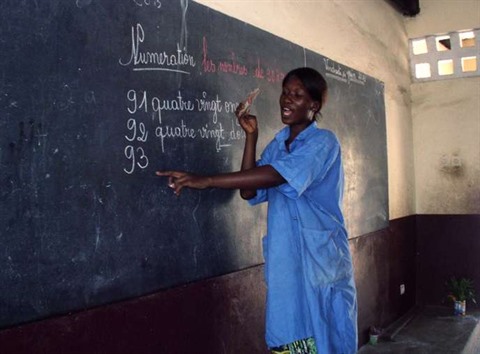 Numération les nombres de
91 quatre vingt on
92 quatre vingt do
93